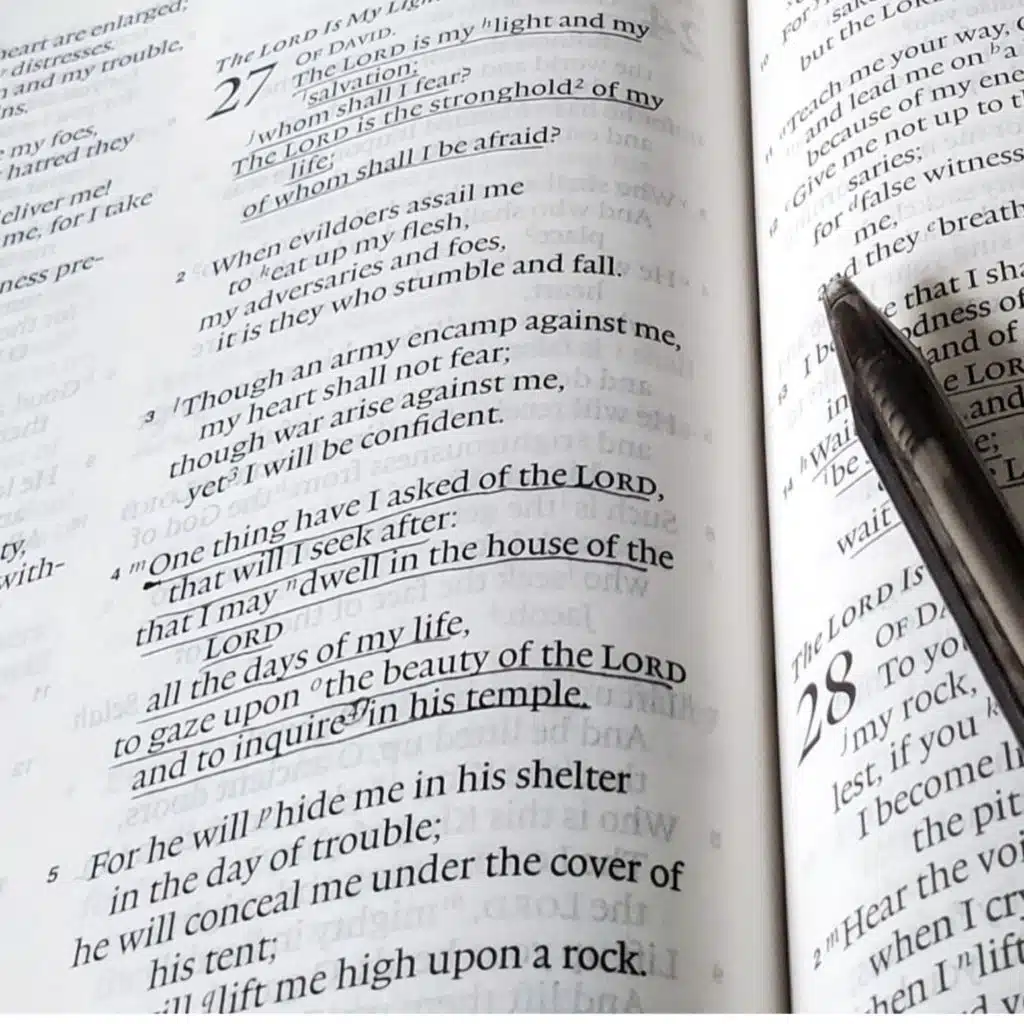 heart are enlarged;
distresses.
and my trouble,
my foes,
hatred they
deliver me!
me, for I take
ness pre-
with-
The LORD Is My Light
27 OF DAVID.
The LORD is my hlight and my
isalvation;
jwhom shall I fear?
The LORD is the stronghold2 of my
life;
of whom shall I be afraid?
2 When evildoers assail me
to keat up my flesh,
my adversaries and foes,
it is they who stumble and fall.
3 lThough an army encamp against me,
my heart shall not fear;
though war arise against me,
yet3 I will be confident.
4 mOne thing have I asked of the LORD,
that will I seek after:
that I may ndwell in the house of the
LORD
all the days of my life,
to gaze upon othe beauty of the LORD
and to inquire4 in his temple.
5 For he will phide me in his shelter
in the day of trouble;
he will conceal me under the cover of
his tent;
qlift me high upon a rock.
10 For
but the LORD
11 Teach me your way,
and lead me on ba
because of my
12 cGive me not up to
saries;
for dfalse
me,
and they ebreath
13 I
that I
of
land of
in
14 hWait
be
and
wait
The LORD Is
28 OF
To
jmy rock,
lest, if you k
I become
the pit
2 mHear the
when I
when I nlift